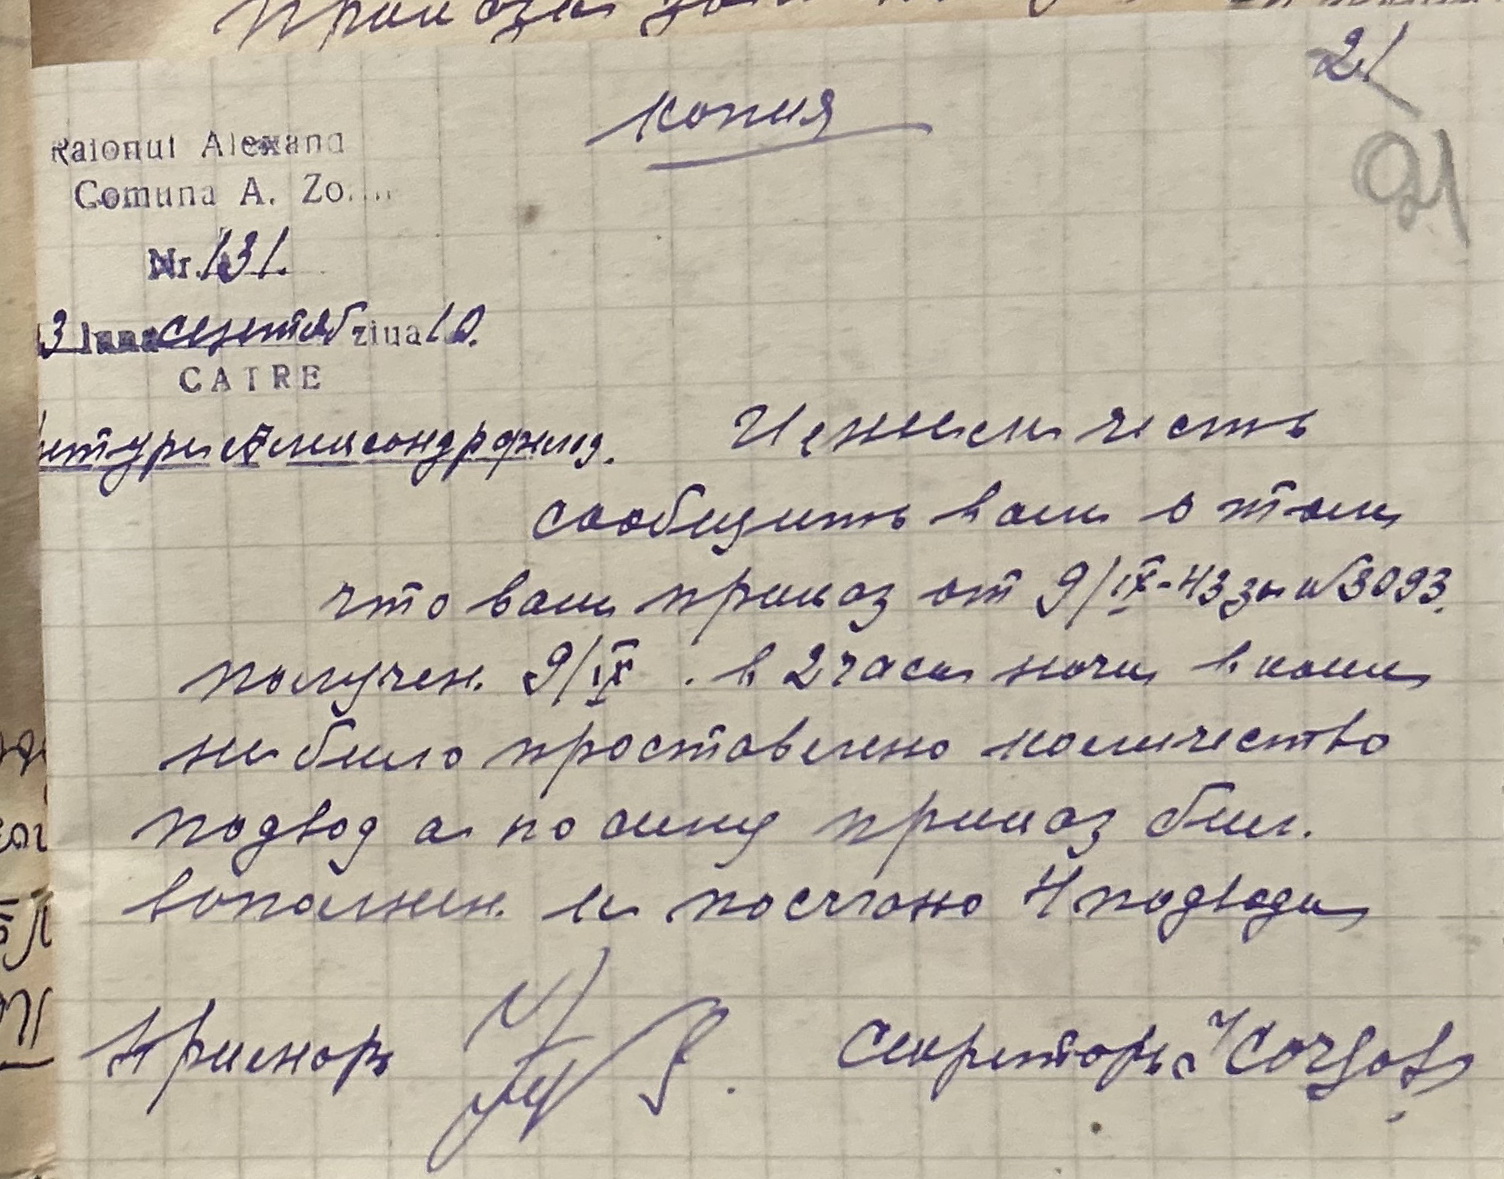 21
копия
21
Raionul Alexand
Comuna A. Zo
Nr. 131.
3 luna сентяб ziua 10.
CATRE
Имеем честь
сообщить вам о том
что ваш приказ от 9/IX-43 за №3093.
получен. 9/IX. в 2 часа ночи в нем
не било проставлено количество
подвод а по сему приказ бил.
вополнен. и послано 4 подводы
Примарь
Секреторь